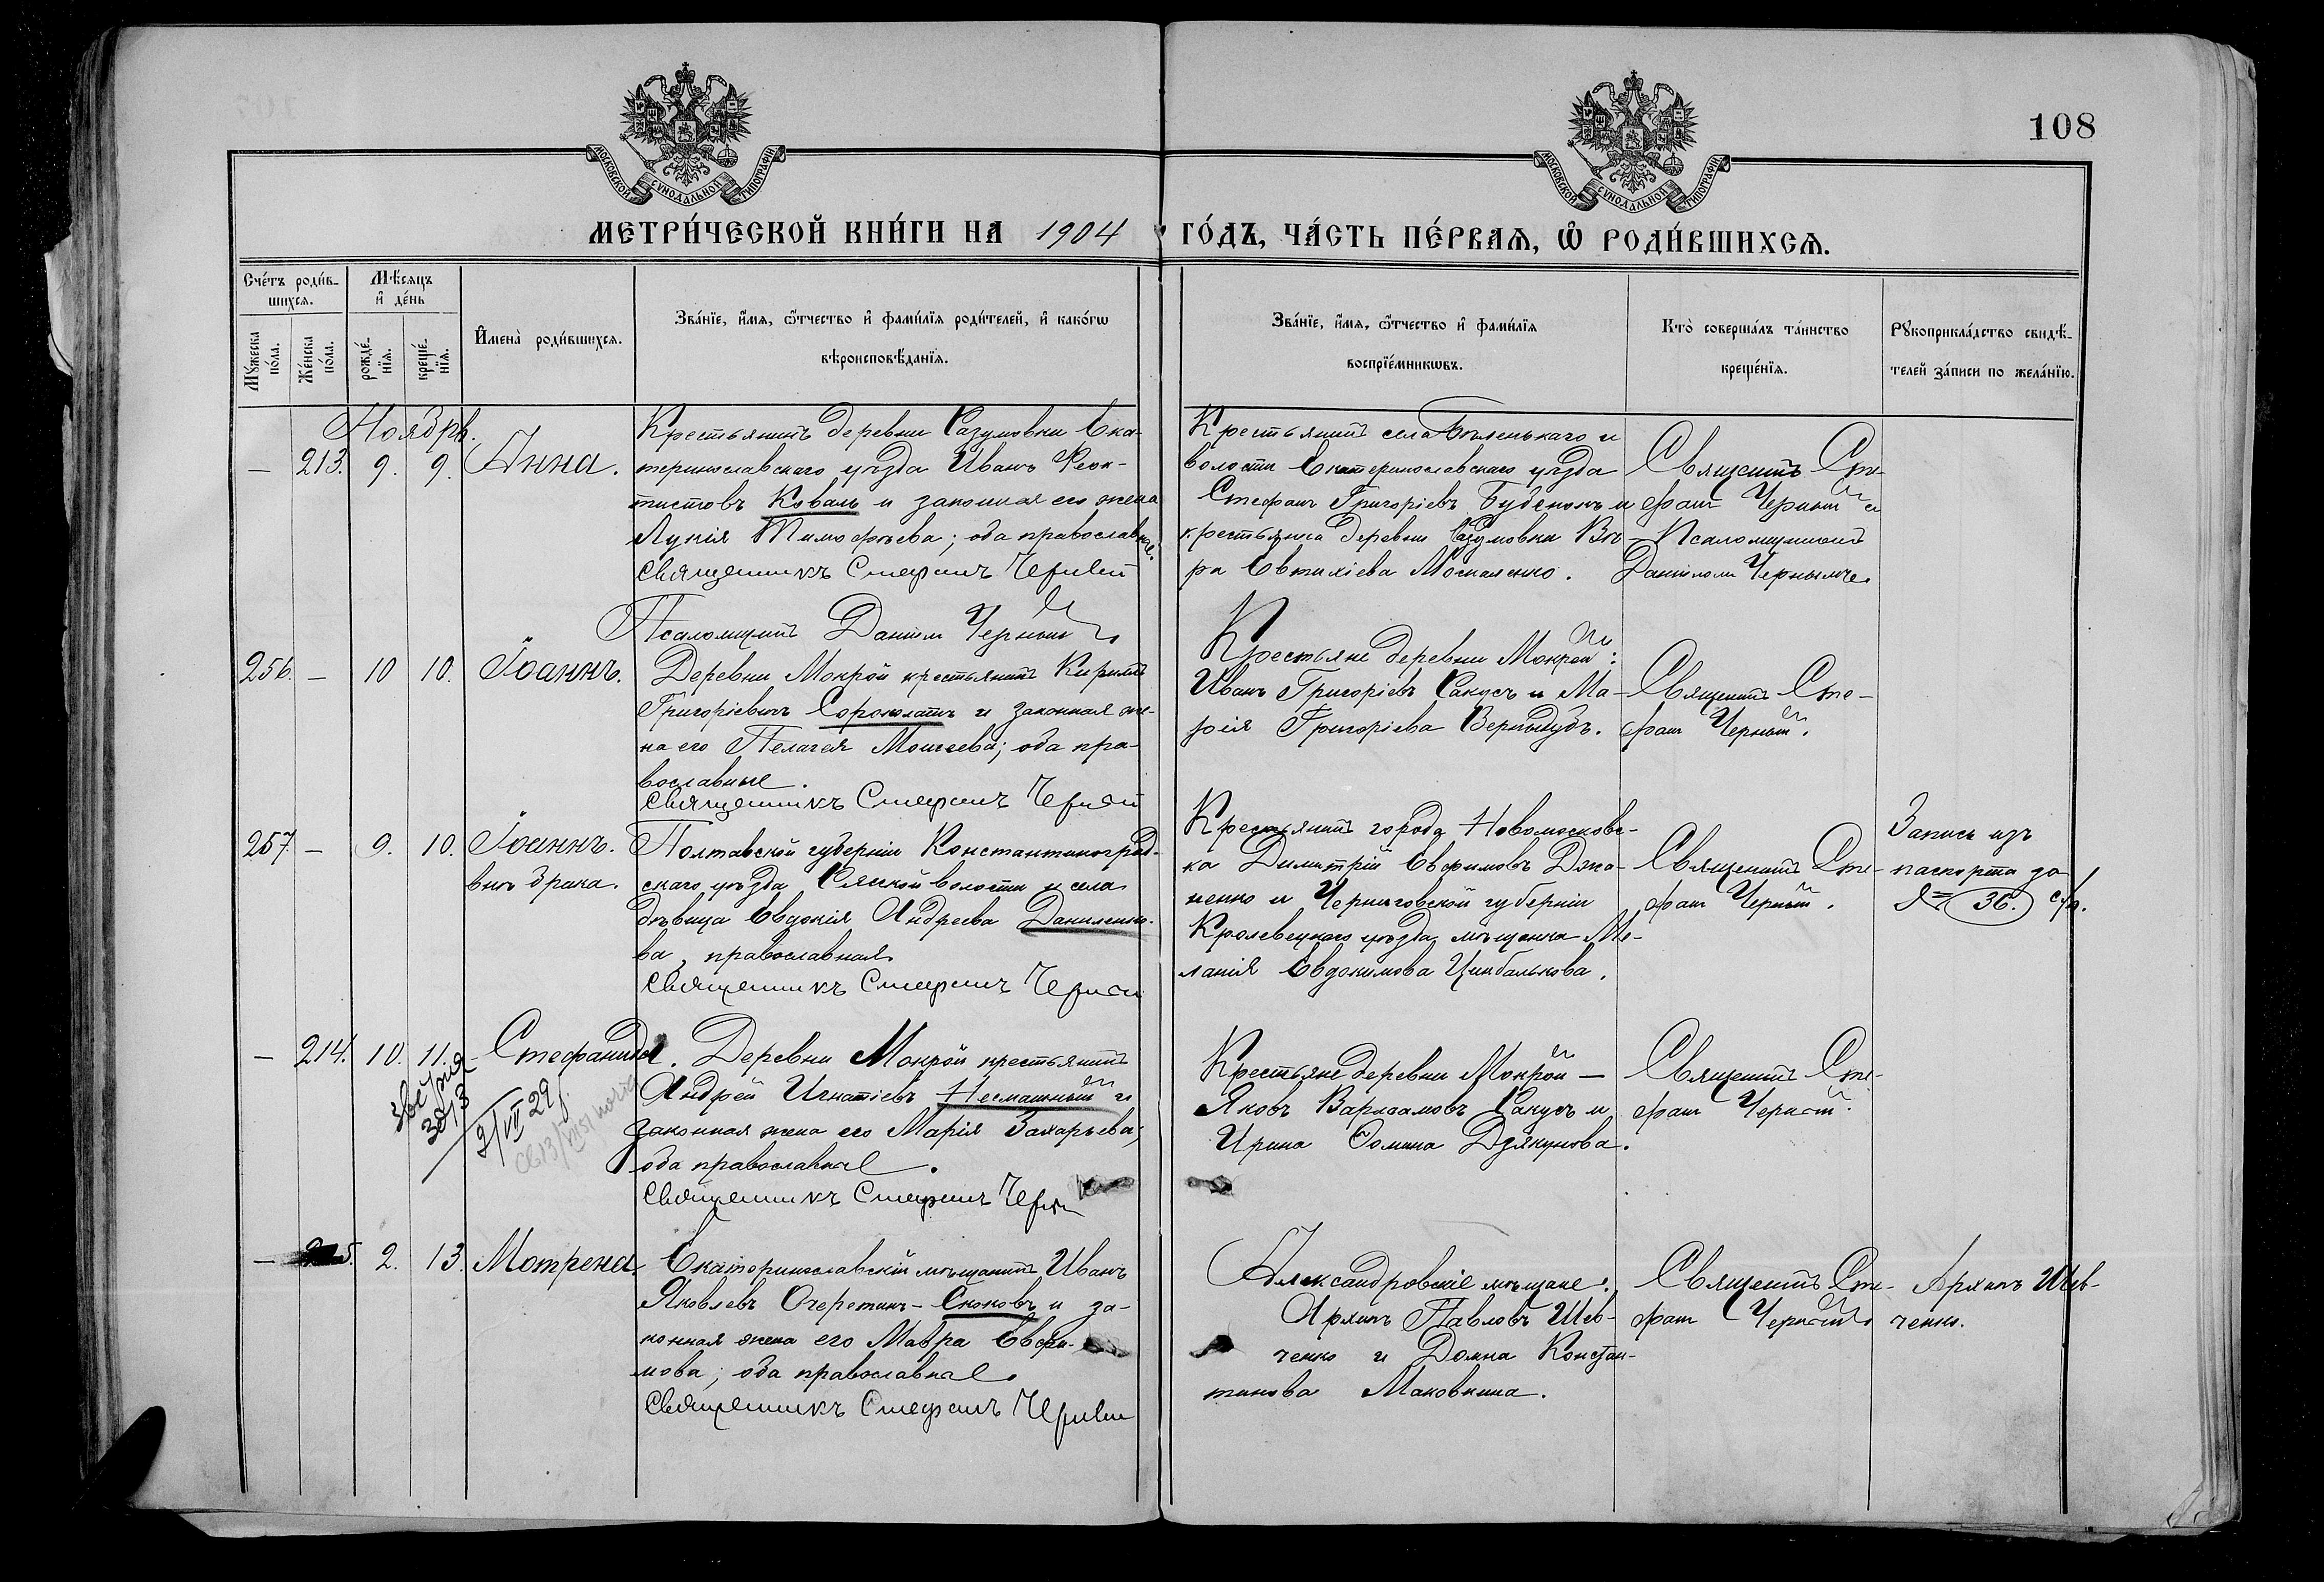 108
МОСКОВСКОЙ СѴНОДАЛЬНОЙ ТИПОГРАФІИ
МОСКОВСКОЙ СѴНОДАЛЬНОЙ ТИПОГРАФІИ
МЕТРИ́ЧЕСКОЙ КНИ́ГИ НА 1904 ГО́ДЪ, ЧА́СТЬ ПЕ́РВАѦ, Ѡ РОДИ́ВШИХСѦ.
Сче́тъ роди́в-
шихсѧ.
Мѣ́сяцъ
и҆ де́нь
Мꙋ́жеска
по́ла.
Же́нска
по́ла.
рожде́-
нїѧ.
креще́-
нїѧ.
И҆мена̀ роди́вшихсѧ.
Зва́нїе, и҆́мѧ, ѻ҆́тчество и҆ фами́лїѧ роди́телей, и҆ како́гѡ
вѣроисповѣ́данїѧ.
Зва́нїе, и҆́мѧ, ѻ҆́тчество и҆ фами́лїѧ
воспрїе́мникѡвъ.
Кто̀ соверша́лъ та́инство
креще́нїѧ.
Рꙋкоприкла́дство свидѣ́-
телей за́писи по жела́нїю.
Ноябрь.
— 213. 9. 9. Анна.
Крестьянинъ деревни Разумовки Ека-
теринославскаго уѣзда Иванъ Феок-
тистовъ Коваль и законная его жена
Лукія Тимофѣева; оба православные.
Священникъ Стефанъ Черный
Псаломщикъ Даніилъ Черный
Крестьянинъ села Бѣленькаго и
волости Екатеринославскаго уѣзда
Стефанъ Григоріевъ и
крестьянка деревни Разумовки Вѣ-
ра Евтихіева Москаленко.
Священникъ Сте-
фанъ Черный съ
Псаломщикомъ
Даніиломъ Чернымъ.
256. — 10 10. Іоаннъ.
Деревни Мокрой крестьянинъ Кириллъ
Григоріевичъ Сороколатъ и законная же-
на его Пелагея Моисеева; оба пра-
вославные.
Священникъ Стефанъ Черный
Крестьяне деревни Мокрой:
Иванъ Григоріевъ Сакусъ и Ма-
рія Григоріева Вернидубъ.
Священникъ Сте-
фанъ Черный.
257. — 9. 10. Іоаннъ.
внѣ брака.
Полтавской губерніи Константиноград-
скаго уѣзда волости и села
дѣвица Евдокія Андреева Даниленко-
ва, православная.
Священникъ Стефанъ Черный
Крестьянинъ города Новомосковс-
ка Димитрій Евфимовъ
и Черниговской губерніи
Кролевецкаго уѣзда мѣщанка Ме-
ланія Евдокимова Цимбалькова.
Священникъ Сте-
фанъ Черный.
Запись изъ
паспорта за
№ 36.
— 214. 10. 11. Стефанида.
Деревни Мокрой крестьянинъ
Андрей Игнатіевъ Несмашный и
законная жена его Марія Захарьева;
оба православные.
Священникъ Стефанъ Черный
2/VII 29
Крестьяне деревни Мокрой —
Яковъ Варлаамовъ Сакусъ и
Ирина Ѳомина Дзякунова.
Священникъ Сте-
фанъ Черный.
— 215. 2. 13. Мотрена.
Екатеринославскій мѣщанинъ Иванъ
Яковлевъ Очеретинъ-Скоковъ и за-
конная жена его Мавра Евфи-
мова; оба православные.
Священникъ Стефанъ Черный
Александровскіе мѣщане:
Архипъ Павловъ Шев-
ченко и Домна Констан-
тинова Маковкина.
Священникъ Сте-
фанъ Черный.
Архипъ Шев-
ченко.